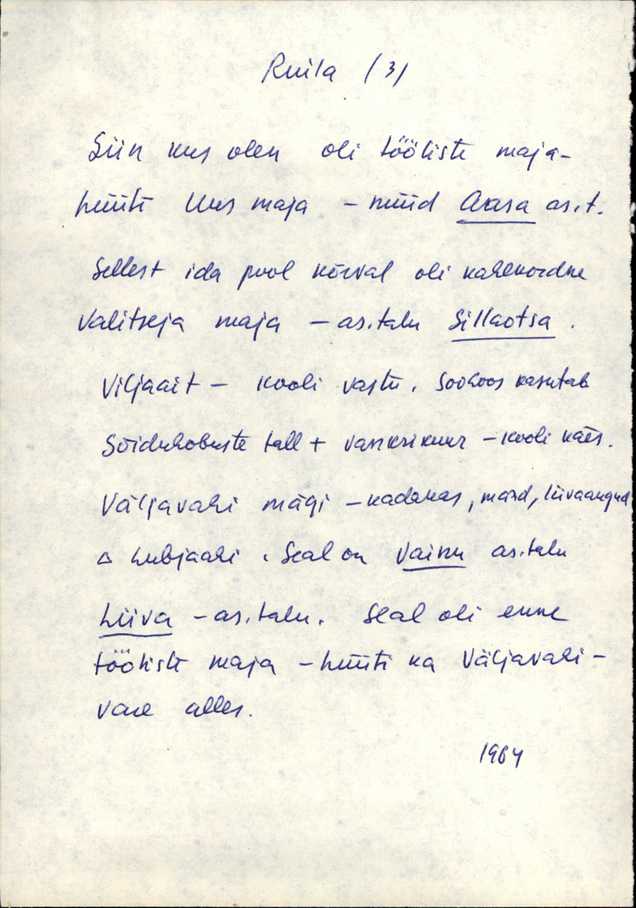 Ruila /3/
Siin kus olen oli tööliste maja-
hüüti Uus maja - nüüd Aasa as.t.
Sellest ida pool kõrval oli kahekordne
Valitseja maja - as.talu Sillaotsa.
Viljaait - kooli vastu. Sovhoos kasutab
Sõiduhobuste tall + vankrikuur - kooli käes.
Väljavahi mägi - kadakas, mänd, liivaaugud
△ Lubjaahi. Seal on Vainu as.talu
Liiva - as.talu. Seal oli enne
tööliste maja - hüüti ka Väljavahi -
vare alles.
1964